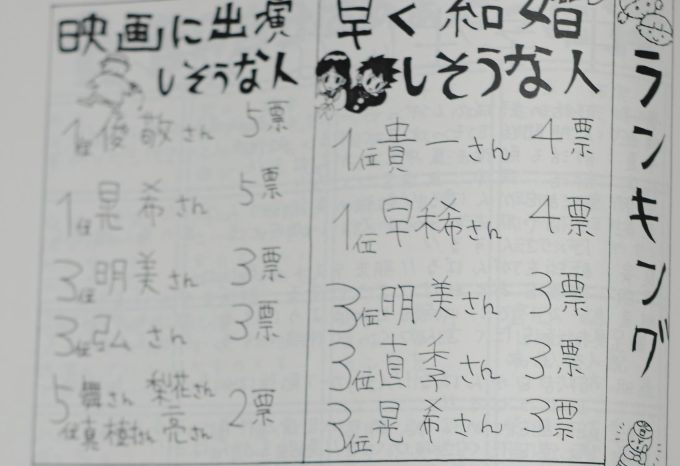 ランキング
早く結婚
しそうな人
1位貴一さん 4票
1位早稀さん 4票
3位明美さん 3票
3位直季さん 3票
3位晃希さん 3票
映画に出演
しそうな人
1位俊敬さん 5票
1位晃希さん 5票
3位明美さん 3票
3位弘さん 3票
5位舞さん 梨花さん 2票
真植さん 亮さん